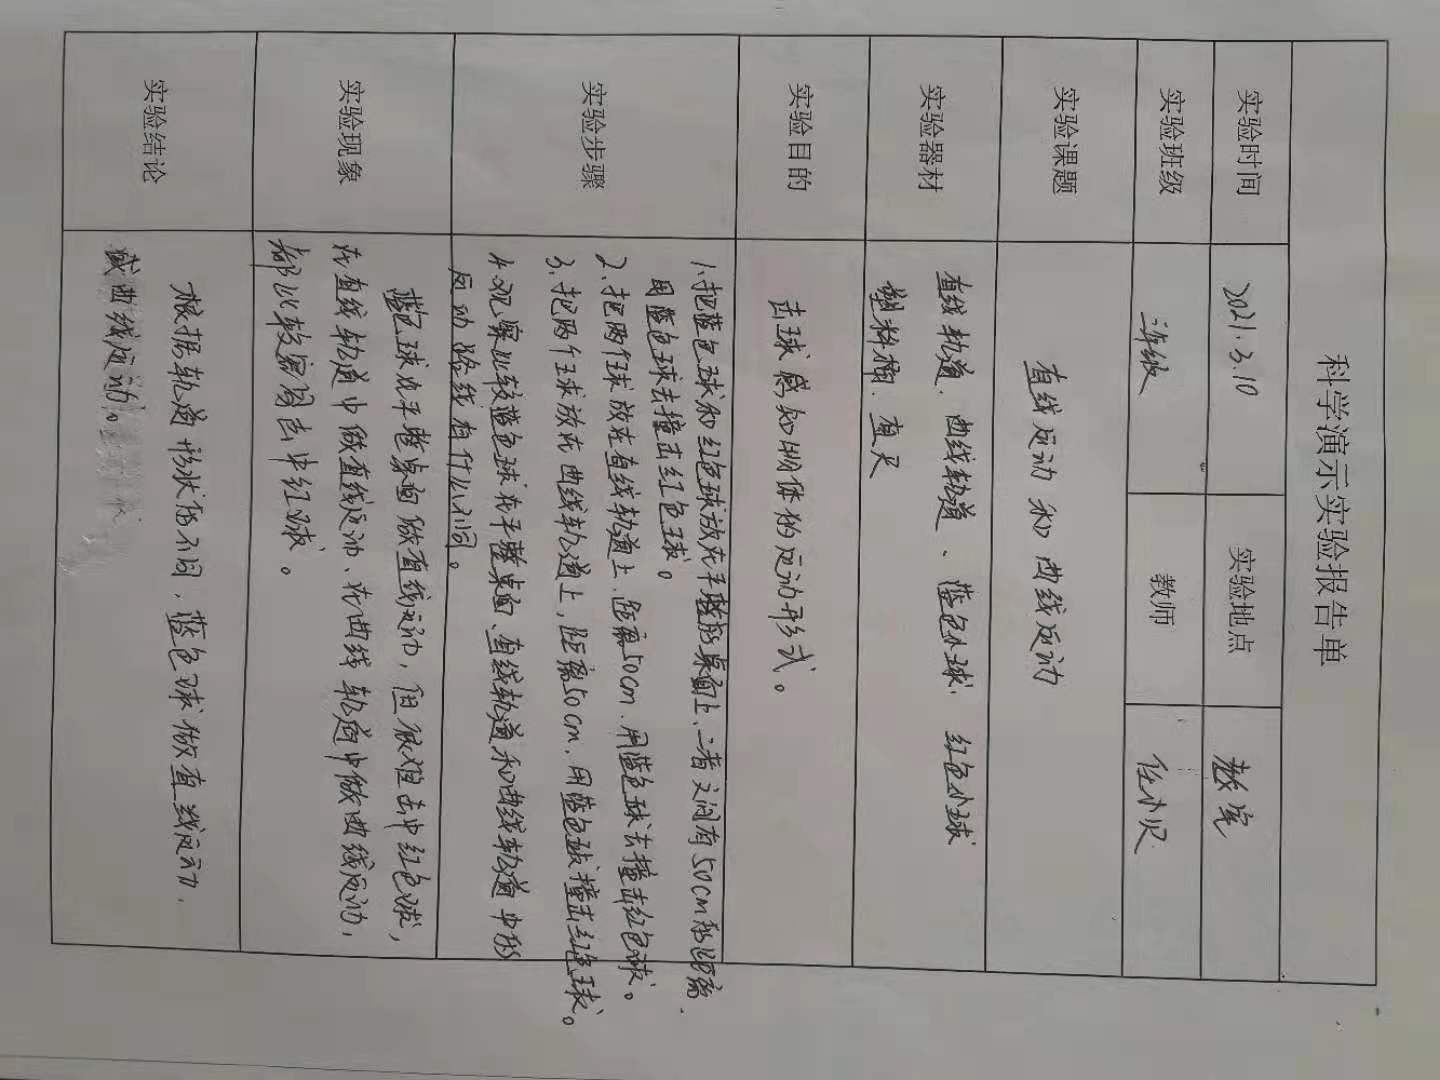 科学演示实验报告单
实验时间 2021.3.10 实验地点 教室
实验班级 三年级 教师
实验课题 直线运动和曲线运动
实验器材 直线轨道、曲线轨道、蓝色小球、红色小球
塑料棒、直尺
实验目的 击球感知物体的运动形式。
实验步骤 1、把蓝色球和红色球放在平整的桌面上、二者之间有50cm的距离,
用蓝色球去撞击红色球。
2、把两个球放在直线轨道上、距离50cm.用蓝色球去撞击红色球。
3、把两个球放在曲线轨道上,距离50cm.用蓝色球撞击红色球。
4、观察比较蓝色球在平整桌面、直线轨道和曲线轨道中的
运动路线有什么不同。
实验现象 蓝色球在平整桌面做直线运动,但很难击中红色球,
在直线轨道中做直线运动、在曲线轨道中做曲线运动,
都比较容易击中红球。
实验结论 根据轨道形状的不同,蓝色球做直线运动、
或曲线运动。